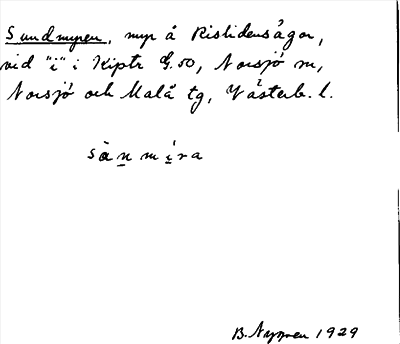 Sundmyren, myr å Rislidens ågor,
vid "i" i Kiptr G. 50, Norsjö sn,
Norsjö och Malå tg, Västerb. l.
sànmíra
B. Nygren 1929